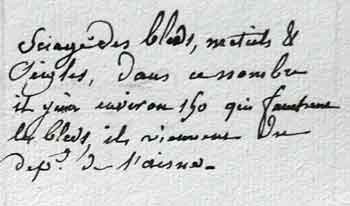 Sciage des bleds, meteils &
Seigles, Dans ce nombre
il y en a environ 150 qui
les bleds, ils viennent du
depᵗ. de l'aisne.